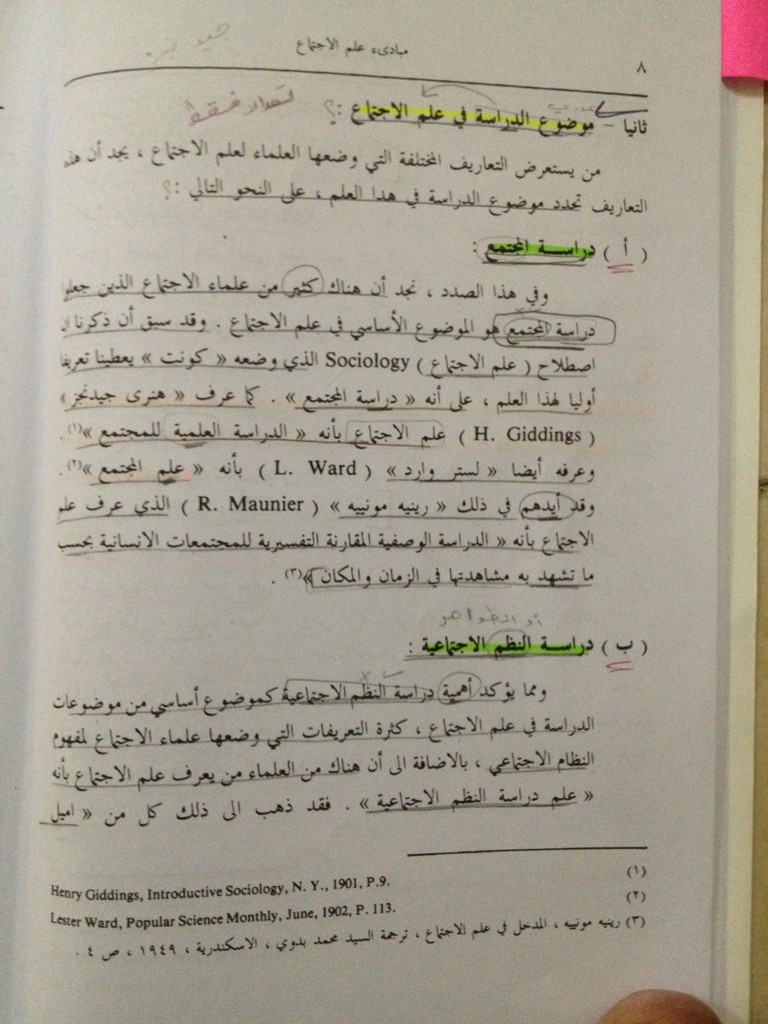 مبادىء علم الاجتماع
٨
تعداد فقط
ثانيا – موضوع الدراسة في علم الاجتماع :؟
من يستعرض التعاريف المختلفة التي وضعها العلماء لعلم الاجتماع ، يجد أن هذه
التعاريف تحدد موضوع الدراسة في هذا العلم ، على النحو التالي :؟
( أ ) دراســة المجتمع :
وفي هذا الصدد ، نجد أن هناك كثير من علماء الاجتماع الذين جعلوا
دراسة المجتمع هو الموضوع الأساسي في علم الاجتماع . وقد سبق أن ذكرنا ان
اصطلاح ( علم الاجتماع ) Sociology الذي وضعه « كونت » يعطينا تعريفا
أوليا لهذا العلم ، على أنه « دراسة المجتمع » . كما عرف « هنرى جيدنجز »
( H. Giddings ) علم الاجتماع بأنه « الدراسة العلمية للمجتمع »(١).
وعرفه أيضا « لستر وارد » ( L. Ward ) بأنه « علم المجتمع »(٢) .
وقد أيدهم في ذلك « رينيه مونييه » ( R. Maunier ) الذي عرف علم
الاجتماع بأنه « الدراسة الوصفية المقارنة التفسيرية للمجتمعات الانسانية بحسب
ما تشهد به مشاهدتها في الزمان والمكان »(٣) .
أو الظواهر
( ب ) دراســة النظم الاجتماعية :
ومما يؤكد أهمية دراسة النظم الاجتماعية كموضوع أساسي من موضوعات
الدراسة في علم الاجتماع ، كثرة التعريفات التي وضعها علماء الاجتماع لمفهوم
النظام الاجتماعي ، بالاضافة الى أن هناك من العلماء من يعرف علم الاجتماع بأنه
« علم دراسة النظم الاجتماعية » . فقد ذهب الى ذلك كل من « اميل
(١) Henry Giddings, Introductive Sociology, N. Y., 1901, P.9.
(٢) Lester Ward, Popular Science Monthly, June, 1902, P. 113.
(٣) رينيه مونييه ، المدخل في علم الاجتماع ، ترجمة السيد محمد بدوي ، الاسكندرية ، ١٩٤٩ ، ص ٤ .